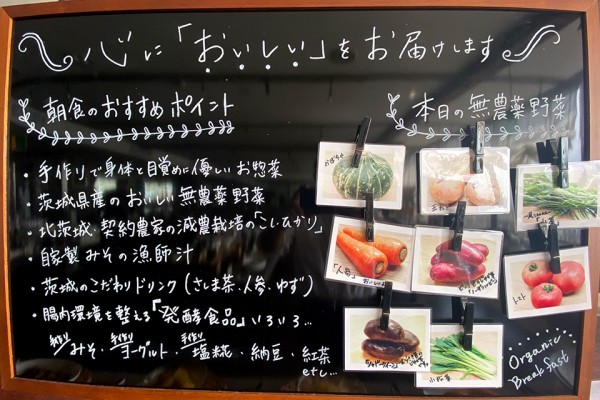 心に「おいしい」をお届けします
朝食のおすすめポイント
・手作りで身体と目覚めに優しいお惣菜
・茨城県産のおいしい無農薬野菜
・北茨城・契約農家の減農栽培の「こしひかり」
・自家製みその漁師汁
・茨城のこだわりドリンク(さしま茶・人参・ゆず)
・腸内環境を整える「発酵食品」いろいろ…
手作り みそ・手作り ヨーグルト・手作り 塩糀・納豆・紅茶
etc…
本日の無農薬野菜
かぼちゃ
「人参」
トマト
小松菜
Organic
Breakfast